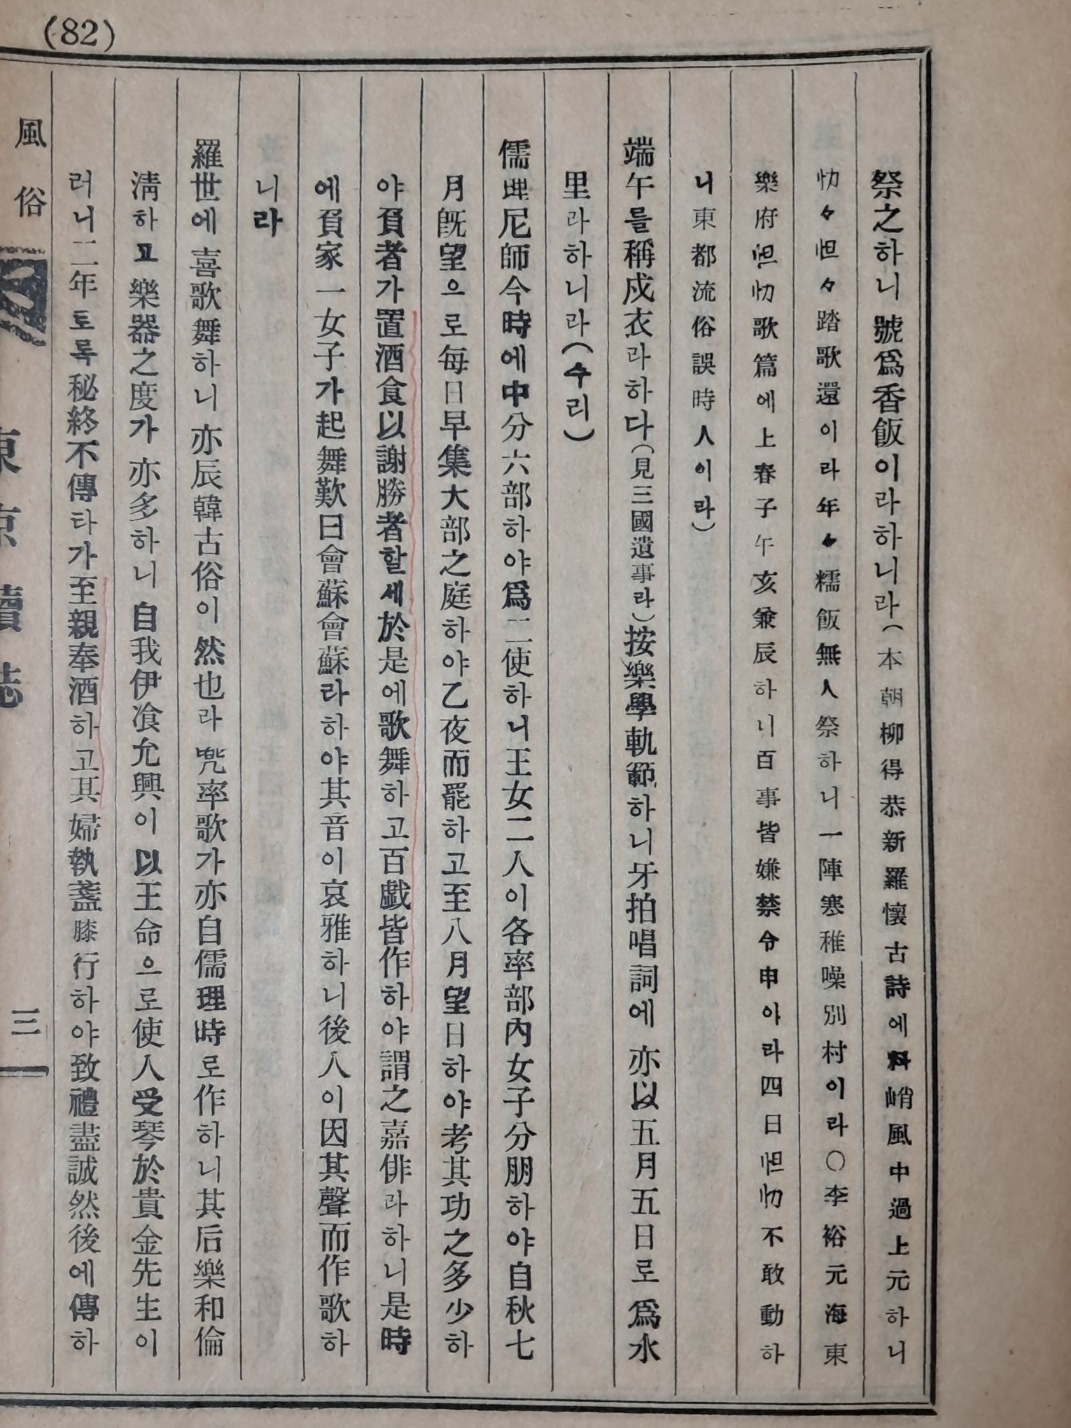 (82)
祭之하니 號爲香飯이라하니라(本朝柳得恭新羅懷古詩에料峭風中過上元하니
忉々怛々踏歌還이라年々糯飯無人祭하니一陣寒鴉噪別村이라○李裕元海東
樂府怛忉歌篇에上春子午亥兼辰하니百事皆嫌禁令申아라四日怛忉不敢動하
니東都流俗誤時人이라)
端午를稱戍衣라하다(見三國遺事라)按樂學軌範하니牙拍唱詞에 亦以五月五日로 爲水
里라하니라(수리)
儒理尼師今時에中分六部하야爲二使하니王女二人이各率部內女子分朋하야自秋七
月旣望으로每日早集大部之庭하야乙夜而罷하고至八月望日하야考其功之多少하
야負者가置酒食以謝勝者할세於是에歌舞하고百戱皆作하야謂之嘉俳라하니是時
에負家一女子가起舞歎曰會蘇會蘇라하야其音이哀雅하니後人이因其聲而作歌하
니라
羅世에 喜歌舞하니 亦辰韓古俗이 然也라 兜率歌가亦自儒理時로作하니其后樂和倫
淸하고 樂器之度가 亦多하니 自我伊飡允興이 以王命으로使人受琴於貴金先生이
러니二年토록秘終不傳타가至親奉酒하고其婦執盞膝行하야致禮盡誠然後에傳하
風俗
東京續誌
三